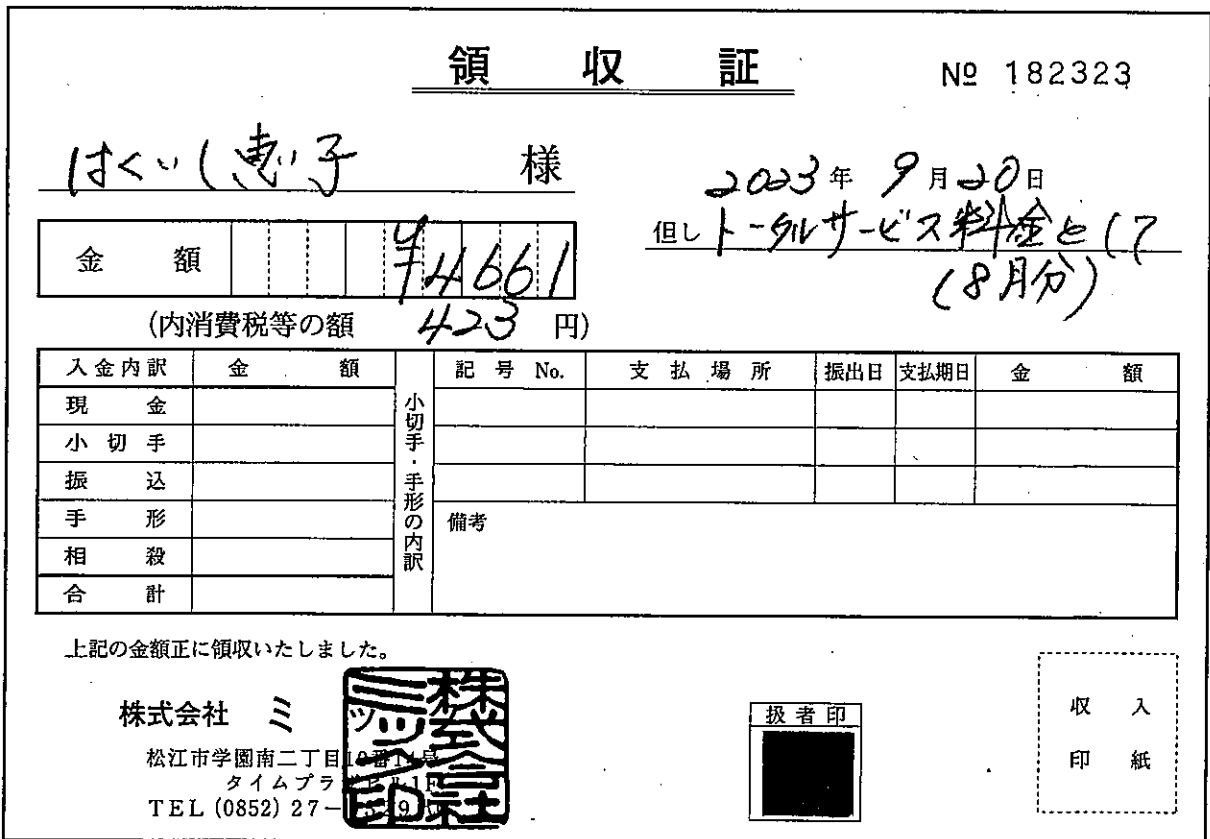 領収証
№ 182323
はくいし恵子 様
2023年 9月20日
但し トータルサービス料金として
(8月分)
金額 ¥4661
(内消費税等の額 423 円)
入金内訳 金額
現金
小切手
振込
手形
相殺
合計
小切手・手形の内訳
記号No. 支払場所 振出日 支払期日 金額
備考
上記の金額正に領収いたしました。
株式会社 ミ
株式会社
松江市学園南二丁目
タイムプラ
TEL (0852) 27-
扱者印
収入
印紙